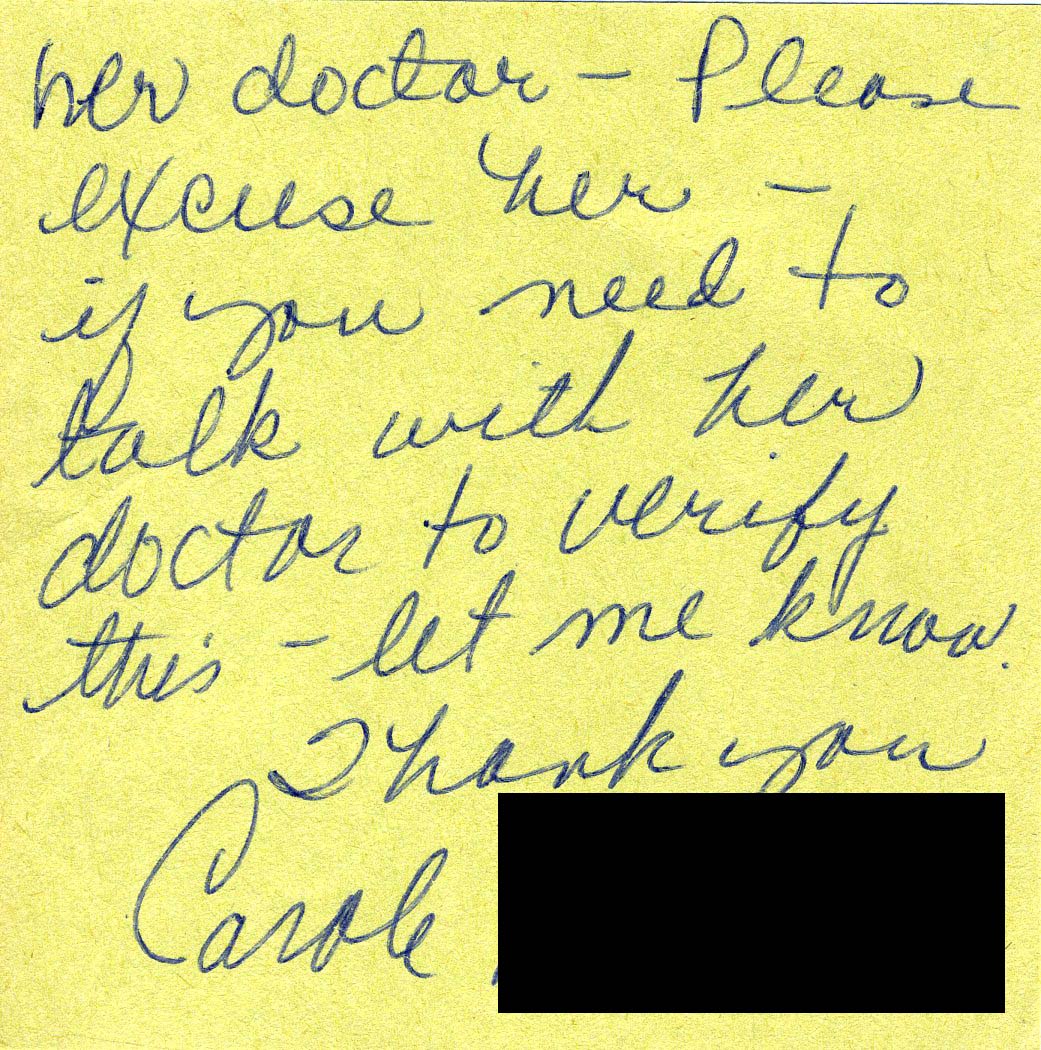 her doctor – Please
excuse her –
if you need to
talk with her
doctor to verify
this – let me know.
Thank you
Carole